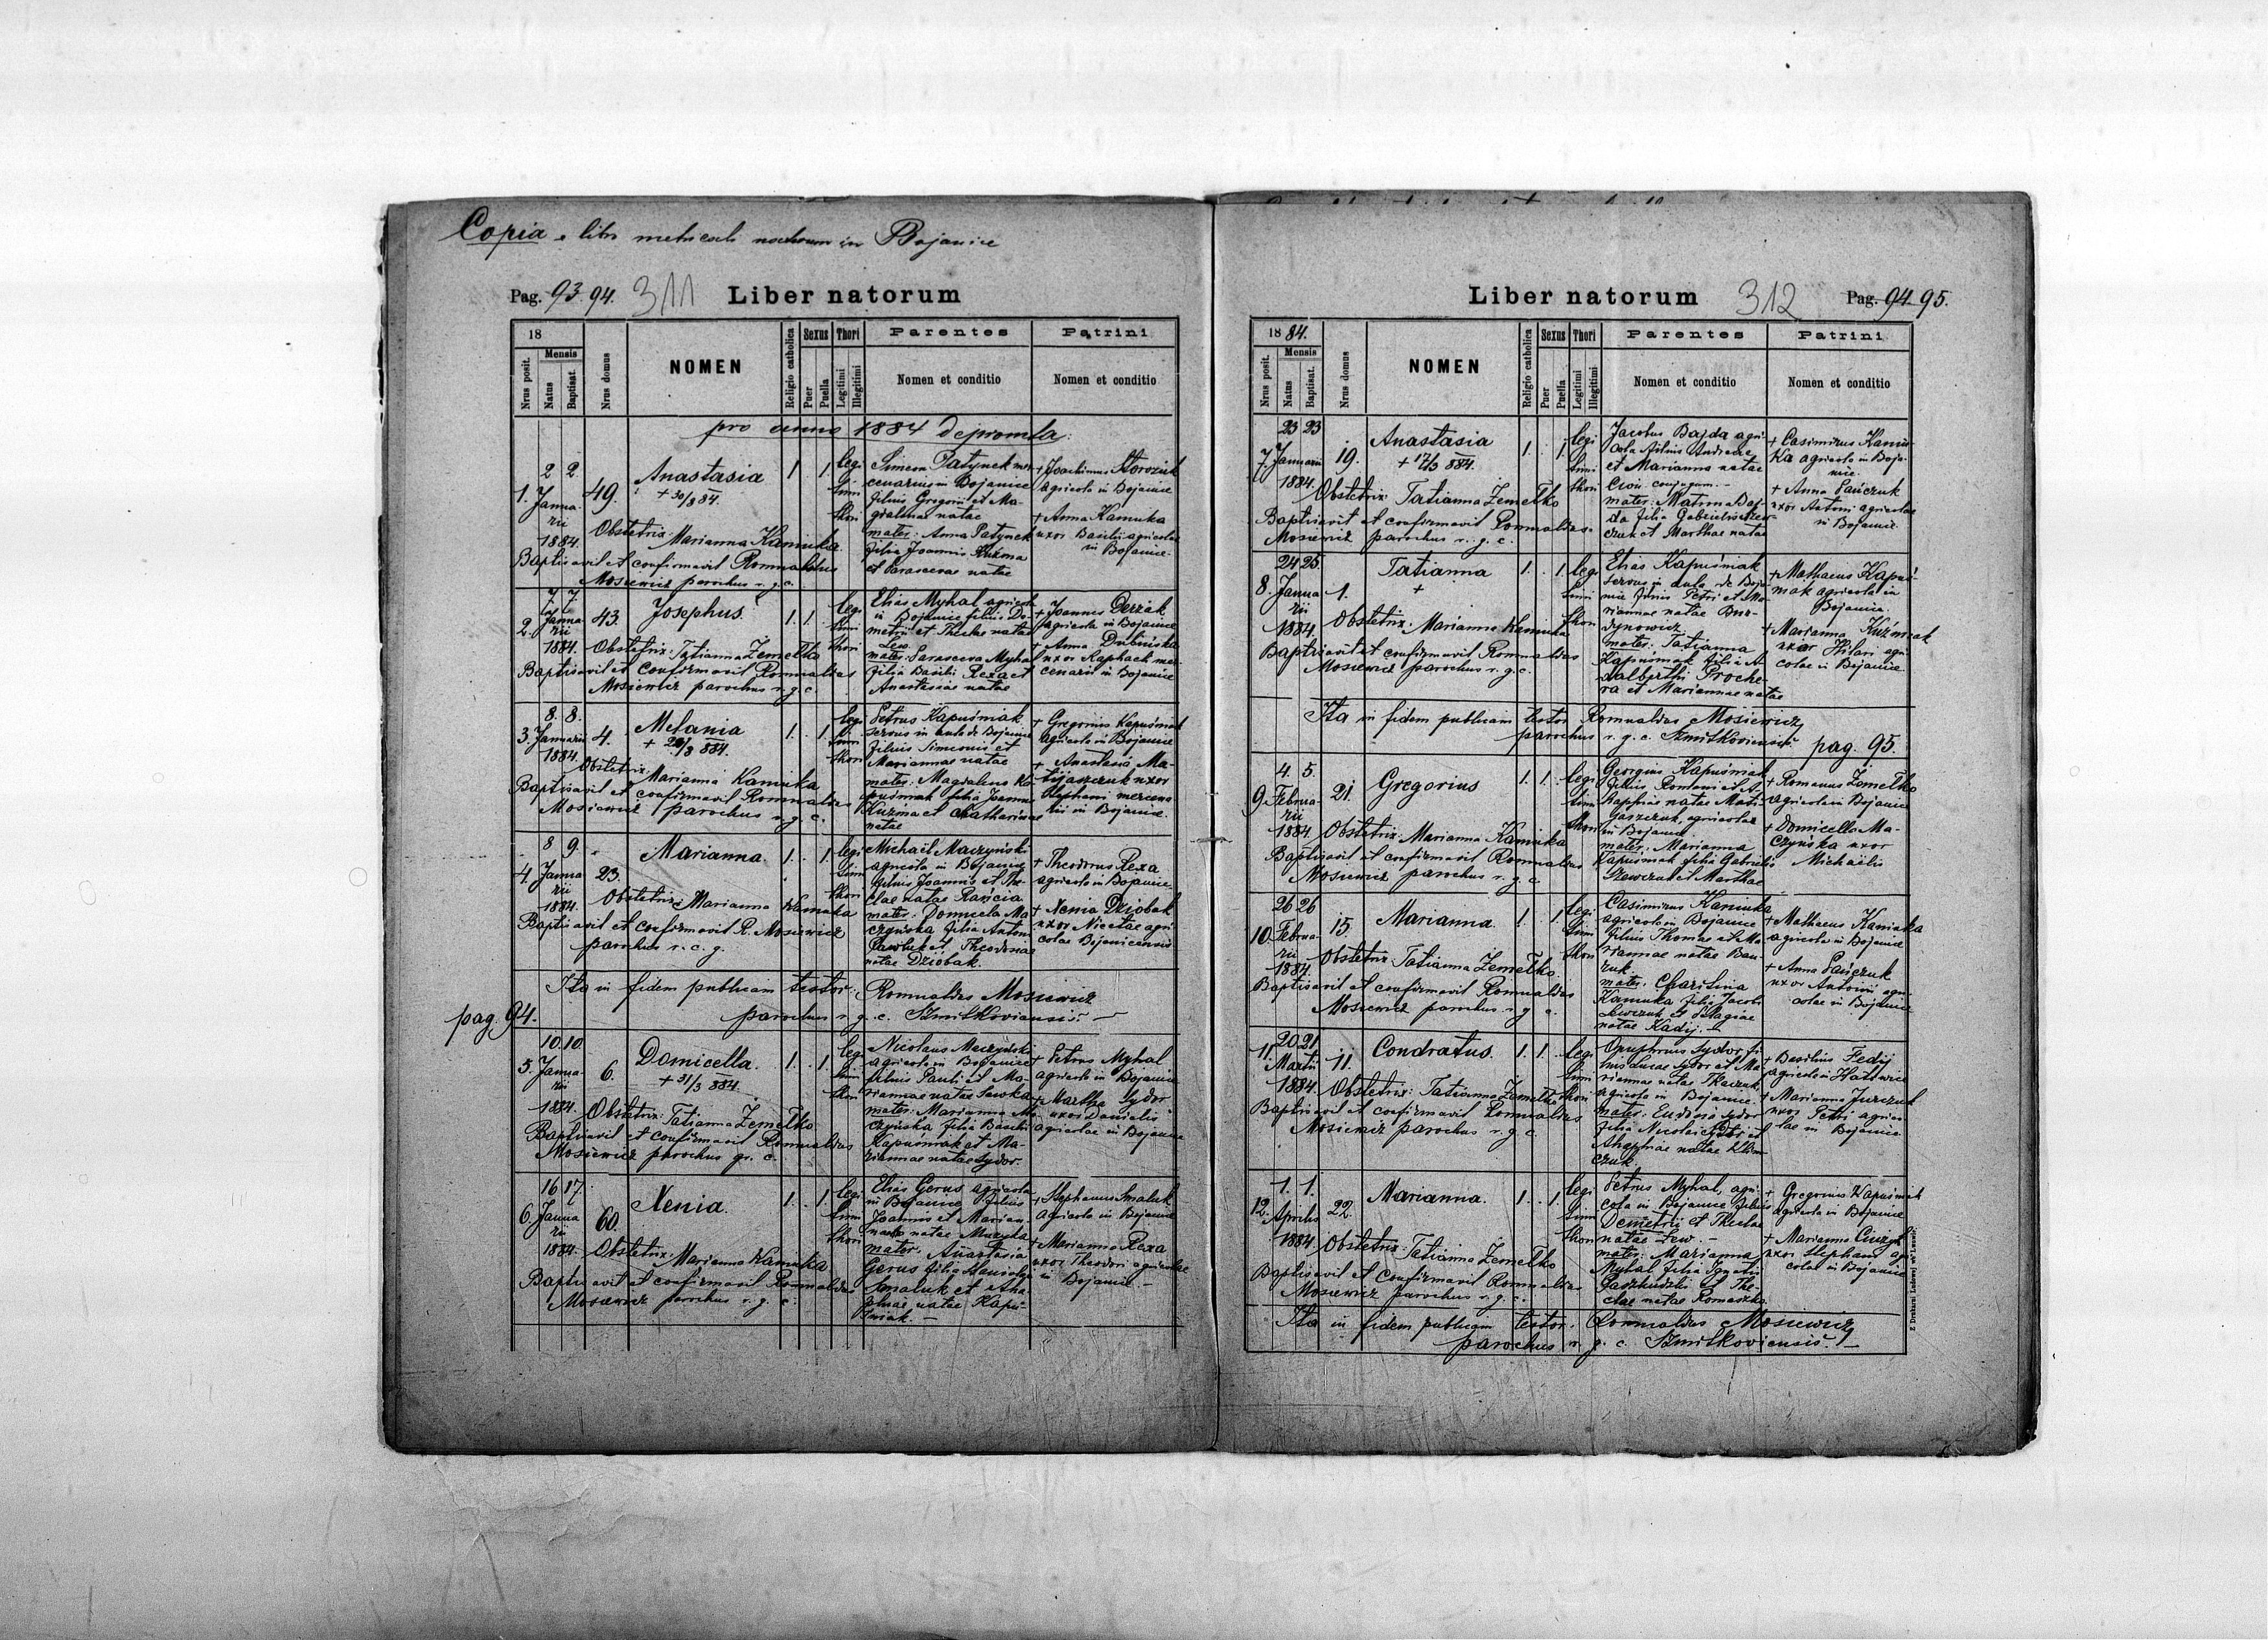 Copia e libri metricali natorum in Bojanice
Pag. 93. 94. 311 Liber natorum
18
Nrus posit.
Mensis
Natus
Baptisat.
Nrus domus
NOMEN
Religio catholica
Sexus
Puer
Puella
Thori
Legitimi
Illegitimi
Parentes
Nomen et conditio
Patrini
Nomen et conditio
pro anno 1884 depromta:
1.
2 2.
Janua-
rii
1884.
49.
Anastasia
+ 30/3 84.
1 1.
legi
timi
thori
Obstetrix Marianna Kaniuka
Baptisavit et confirmavit Romualdus
Mosiewicz parochus r. g. c.
Simeon Patynek mer-
cenarius in Bojanice
filius Gregorii et Ma-
gdalenae natae
mater: Anna Patynek
filia Joannis Kuzma
et Parascevae natae
+ Joachimus Storoziuk
agricola in Bojanice
+ Anna Kaniuka
uxor Basilii agricolae
in Bojanice
2.
7. 7.
Janua
rii
1884.
43.
Josephus.
1. 1.
legi
timi
thori
Obstetrix: Tatianna Zemełko
Baptisavit et confirmavit Romualdus
Mosiewicz parochus r. g. c.
Elias Myhal agricola
in Bojanice filius De-
metrii et Theclae natae
Lew.
mater: Parasceva Myhal
filia Basilii Rexa et
Anastasiae natae
+ Joannes Derzak
agricola in Bojanice
+ Anna Dubińska
uxor Raphaeli mer-
cenarii in Bojanice
3.
8. 8.
Januarii
1884.
4.
Melania
+ 29/3 884.
1. 1.
legi
timi
thori
Obstetrix
Marianna Kaniuka
Baptisavit et confirmavit Romualdus
Mosiewicz parochus r. g. c.
Petrus Kapuśniak
servus in aula de Bojanice
filius Simeonis et
Mariannae natae
mater: Magdalena Ka-
puśniak filia Joannis
Kuzma et Catharinae
natae
+ Gregorius Kapuśniak
agricola in Bojanice
+ Anastasia Ma-
tijaszczuk uxor
Stephani mercena
rii in Bojanice.
4.
8 9.
Janua
rii
1884.
23.
Marianna.
1. 1.
legi
timi
thori
Obstetrix Marianna Kaniuka
Baptisavit et confirmavit R. Mosiewicz
parochus r. c. g.
Michaël Maczyński
agricola in Bojanice
filius Joannis et The-
clae natae
mater: Domicela Ma
czyńska filia Antoni
Pawluk et Theodosiae
natae Dziobak.
+ Theodorus Rexa
agricola in Bojanice
+ Xenia Dziobak
uxor Nicetae agri
colae Bojanicensis
Ita in fidem publicam testor: Romualdus Mosiewicz
parochus r. g. c. Szmitkoviensis. —
pag. 94.
5.
10. 10
Janua-
rii
1884.
6.
Domicella.
+ 31/3 884.
1. 1.
legi
timi
thori
Obstetrix: Tatianna Zemełko
Baptisavit et confirmavit Romualdus
Mosiewicz parochus gr. c.
Nicolaus Maczyński
agricola in Bojanice
filius Pauli et Ma-
riannae natae Sawka
mater: Marianna Ma
czyńska filia Basilii
Kapuśniak et Ma-
riannae natae Sydor.
+ Petrus Myhal
agricola in Bojanice
+ Martha Sydor
uxor Danielis
agricolae in Bojanice
6.
16 17.
Janua
rii
1884.
60.
Xenia.
1. 1.
legi
timi
thori
Obstetrix: Marianna Kaniuka
Baptisavit et confirmavit Romualdus
Mosiewicz parochus r. g. c.
Elias Gerus agricola
in Bojanice filius
Joannis et Marian-
nae natae Muzyka
mater: Anastasia
Gerus filia
Smaluk et Aha
phiae natae Kapu-
śniak. —
+ Stephanus Smaluk
agricola in Bojanice
+ Marianna Rexa
uxor Theodori agricolae
in Bojanice —
Liber natorum 312 Pag. 94. 95.
1884.
Nrus posit.
Mensis
Natus
Baptisat.
Nrus domus
NOMEN
Religio catholica
Sexus
Puer
Puella
Thori
Legitimi
Illegitimi
Parentes
Nomen et conditio
Patrini
Nomen et conditio
7.
23 23
Januarii
1884.
19.
Anastasia
+ 17/3 884.
1. 1.
legi
timi
thori
Obstetrix Tatianna Zemełko
Baptisavit et confirmavit Romualdus
Mosiewicz parochus r. g. c.
Jacobus Bajda agri-
cola filius Andreae
et Marianna natae
conjugum. —
mater: Matrona Baj-
da filia Gabrielis Szew-
czuk et Marthae natae
+ Casimirus Kaniu-
ka agricola in Boja-
nice.
+ Anna Pańczuk
uxor Antoni agricolae
in Bojanice
8.
24 25.
Janua
rii
1884.
1.
Tatianna
+
1. 1.
legi
timi
thori
Obstetrix: Marianna Kaniuka
Baptisavit et confirmavit Romualdus
Mosiewicz parochus r. g. c.
Elias Kapuśniak
servus in aula de Boja-
nice filius Petri et Ma-
riannae natae Bur-
dynowicz
mater: Tatianna
Kapuśniak filia A-
dalberthi Proche-
ra et Mariannae natae
+ Mathaeus Kapuś-
niak agricola in
Bojanice.
+ Marianna Kuźmiak
uxor Hilari agri-
colae in Bojanice
Ita in fidem publicam testor Romualdus Mosiewicz
parochus r. g. c. Szmitkoviensis. pag. 95.
9.
4. 5.
Februa-
rii
1884.
21.
Gregorius
1. 1.
legi
timi
thori
Obstetrix: Marianna Kaniuka
Baptisavit et confirmavit Romualdus
Mosiewicz parochus r. g. c.
Georgius Kapuśniak
filius Romani et A-
happiae natae Mati-
jaszczuk, agricolae
in Bojanice.
mater: Marianna
Kapuśniak filia Gabrielis
Szewczuk et Marthae
+ Romanus Zemełko
agricola in Bojanice
+ Domicella Ma-
czyńska uxor
Michaëlis
10.
26 26
Februa-
rii
1884.
15.
Marianna.
1. 1.
legi
timi
thori
Obstetrix Tatianna Zemełko
Baptisavit et confirmavit Romualdus
Mosiewicz parochus r. g. c.
Casimirus Kaniuka
agricola in Bojanice
filius Thomae et Ma-
riannae natae Ban-
zuk.
mater: Charitina
Kaniuka filia Jacobi
Szewczuk et Pelagiae
natae Kadij. —
+ Mathaeus Kaniuka
agricola in Bojanice
+ Anna Pańczuk
uxor Antonii agri-
colae in Bojanice
11.
20 21
Martii
1884.
11.
Condratus.
1. 1.
legi
timi
thori
Obstetrix: Tatianna Zemełko
Baptisavit et confirmavit Romualdus
Mosiewicz parochus r. g. c.
Onuphrius Sydor fi-
lius Lucae Sydor et Ma
riannae natae Tkaczuk
agricola in Bojanice.
mater: Eudoxia Sydor
filia Nicolai et
Ahaphiae natae Klim-
czuk.
+ Basilius Fedij
agricola in
+ Marianna Jurczuk
uxor Petri agrico-
lae in Bojanice
12.
1. 1.
Aprilis
1884.
22.
Marianna.
1. 1.
legi
timi
thori
Obstetrix: Tatianna Zemełko
Baptisavit et confirmavit Romualdus
Mosiewicz parochus r. g. c.
Petrus Myhal, agri-
cola in Bojanice filius
Demetrii et Theclae
natae Lew. —
mater: Marianna
Myhal filia Ignatii
et The-
clae natae Romaszko
+ Gregorius Kapuśniak
agricola in Bojanice
+ Marianna
uxor Stephani agri-
colae in Bojanice
Ita in fidem publicam testor: Romualdus Mosiewicz
parochus r. g. c. Szmitkoviensis. —
Z Drukarni Ludowej we Lwowie.